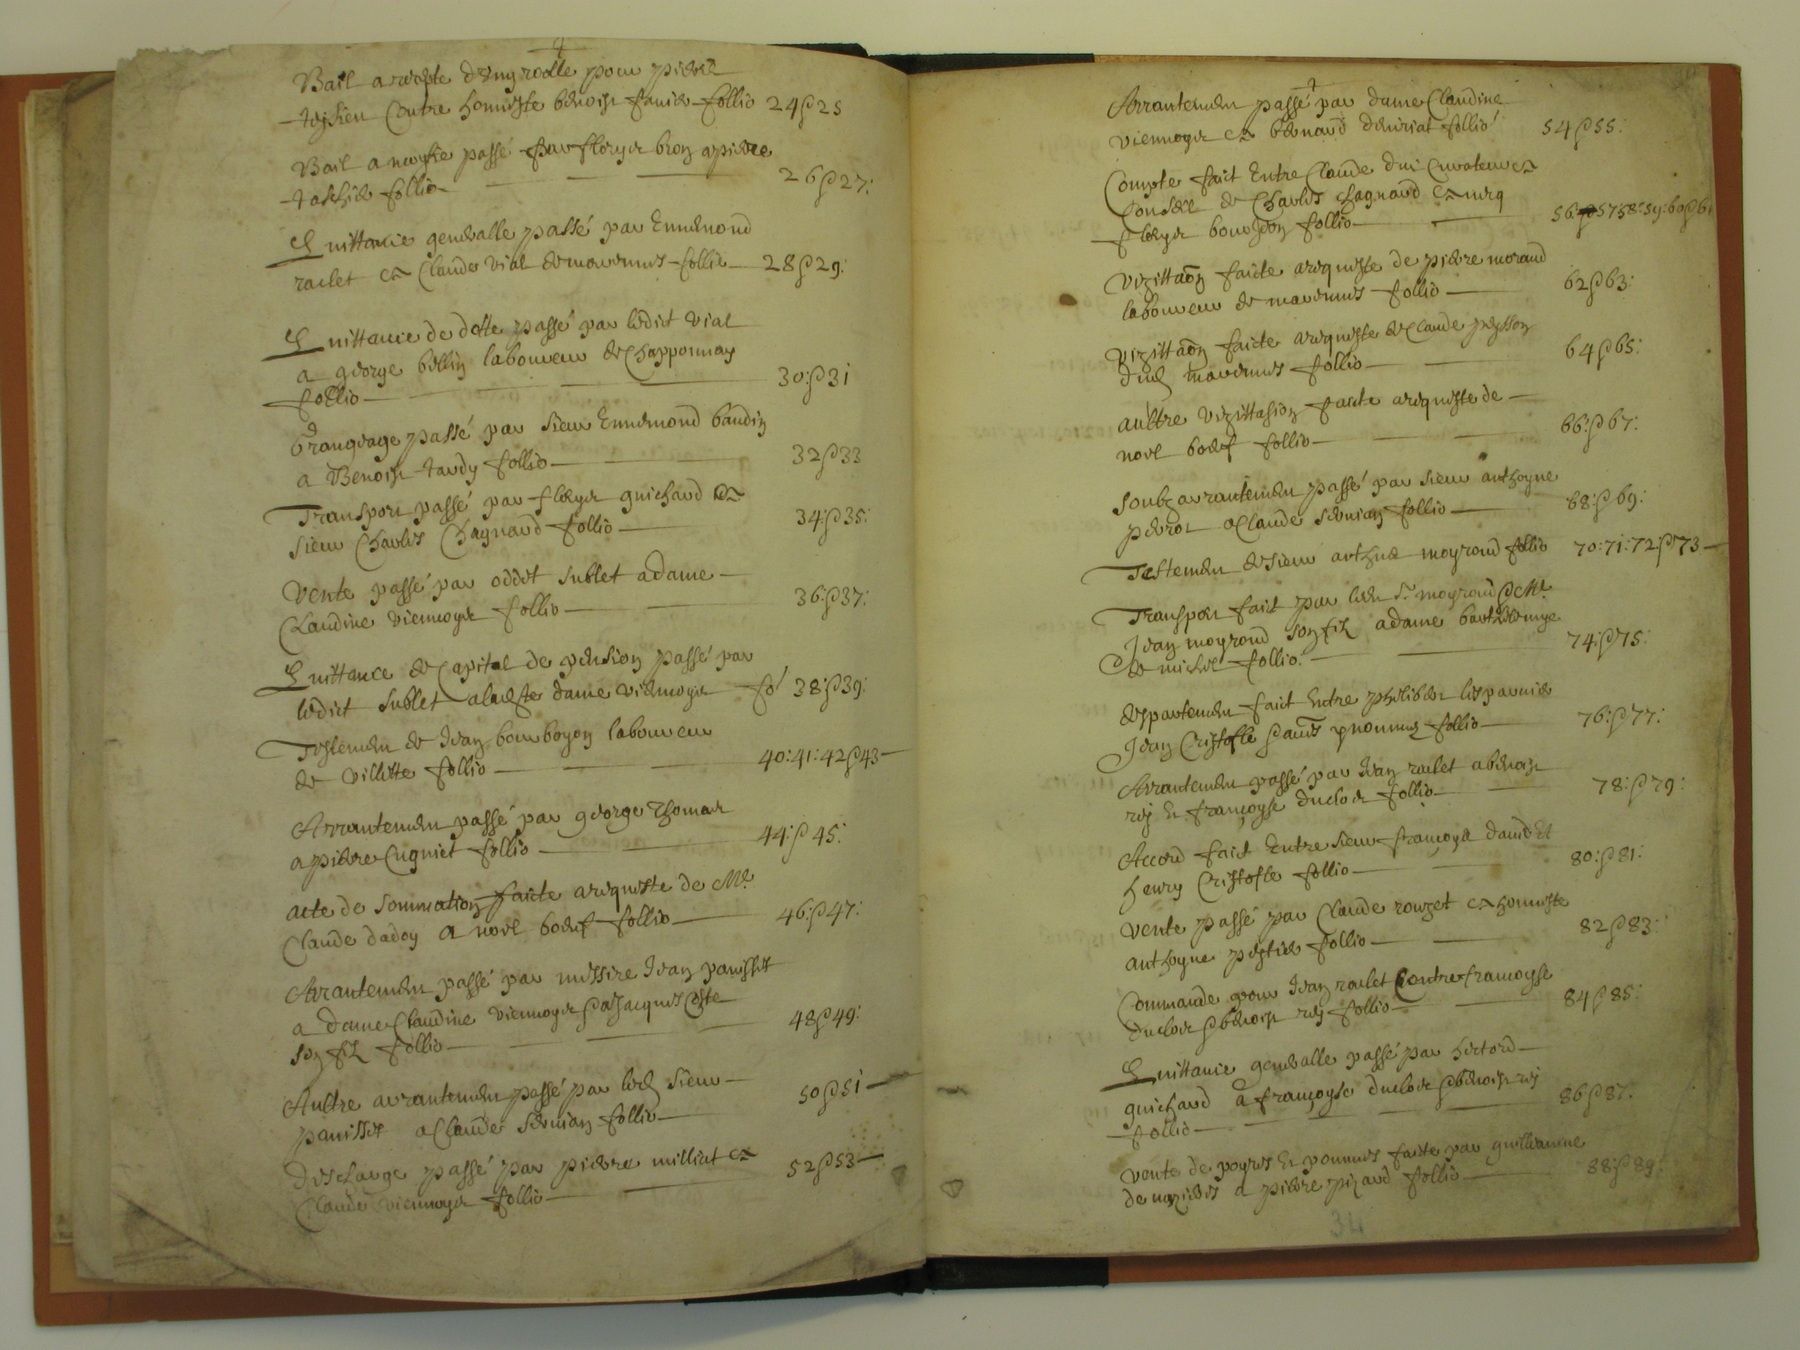 Bail a recepte d'ung rolle pour pierre
Contre honneste benoist follio 24 & 25
Bail a moytie passé par fleurye bron a pierre
follio 26 & 27:
Quittance generalle passé par Ennemond
raclet et Claude Vial de mourennes follio 28 & 29:
Quittance de dotte passé par ledict vial
a george bellin laboureur de Chapponnay
follio 30: & 31
Grangeage passé par sieur Ennemond baudin
a Benoist tardy follio 32 & 33
Transport passé par fleurye guichard et
sieur Charles Chagnard follio 34: & 35:
Vente passé par oddet sublet a dame
Claudine viennoyse follio 36: & 37:
Quittance de Capital de pension passé par
ledict sublet a ladicte dame viennoyse fo 38: & 39:
Testement de Jean bourboyon laboureur
de villette follio 40: 41: 42 & 43
Arrantement passé par george Thomas
a pierre Cugniet follio 44: & 45:
acte de sommation faicte a requeste de Me
Claude dadoy a noel boeuf follio 46: & 47:
Arrantement passé par messire Jean panisset
a dame Claudine viennoyse & a Jacques Coste
son filz follio 48 & 49:
Aultre arrantement passé par led sieur
panisset a Claude follio 50 & 51
descharge passé par pierre milliat et
Claude viennoyse follio 52 & 53
Arrantement passé par dame Claudine
viennoyse et bernard follio 54 & 55:
Compte faict Entre Claude Curateur et
Conseil de Charles Chagnard et
fleurye bourgeon follio 56: 57 58: 59: 60 & 61
Vizittaon faicte a requeste de pierre morand
laboureur de mourennes follio 62 & 63:
Vizittaon faicte a requeste de Claude peysson
dud mourennes follio 64 & 65:
aultre Vizittasion faicte a requeste de
noel boeuf follio 66: & 67:
soubz arrantement passé par sieur anthoyne
perrot a Claude follio 68: & 69:
Testement de sieur moyroud follio 70: 71: 72 & 73
Transport faict par led sr moyroud & Me
Jean moyroud son filz a dame barthelemye
de michel follio 74: & 75:
departement faict Entre philibert
Jean Cristofle & follio 76: & 77:
Arrantement passé par Jean raclet a benoist
rey Et françoyse duclos follio 78: & 79:
Accord faict Entre sieur françoys david Et
henry Cristofle follio 80: & 81:
Vente passé par Claude rouzet et honneste
anthoyne follio 82 & 83:
Commande pour Jean raclet Contre françoyse
duclos & benoist rey follio 84 & 85:
Quittance generalle passé par hector
guichard a françoyse duclos & benoist rey
follio 86 & 87:
Vente de poyres Et pommes faite par guillaume
de mezieres a pierre pizard follio 88: & 89:
34